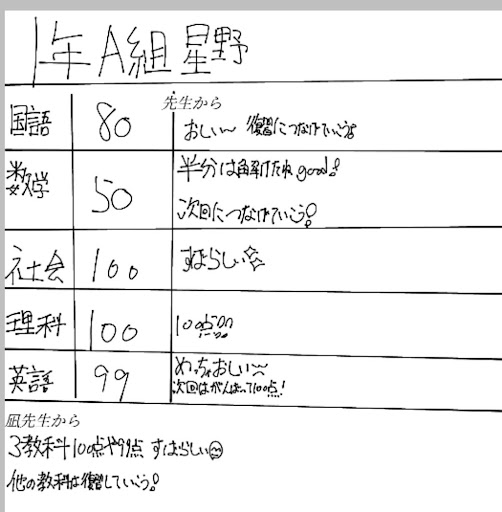 1年A組 星野
先生から
国語 80 おしい〜 復習につなげていこう!
数学 50 半分は解けたね good!
次回につなげていこう!
社会 100 すばらしい
理科 100 100点!!!
英語 99 めっちゃおしい〜
次回はがんばって100点!
凪先生から
3教科100点や99点 すばらしい
他の教科は復習していこう!